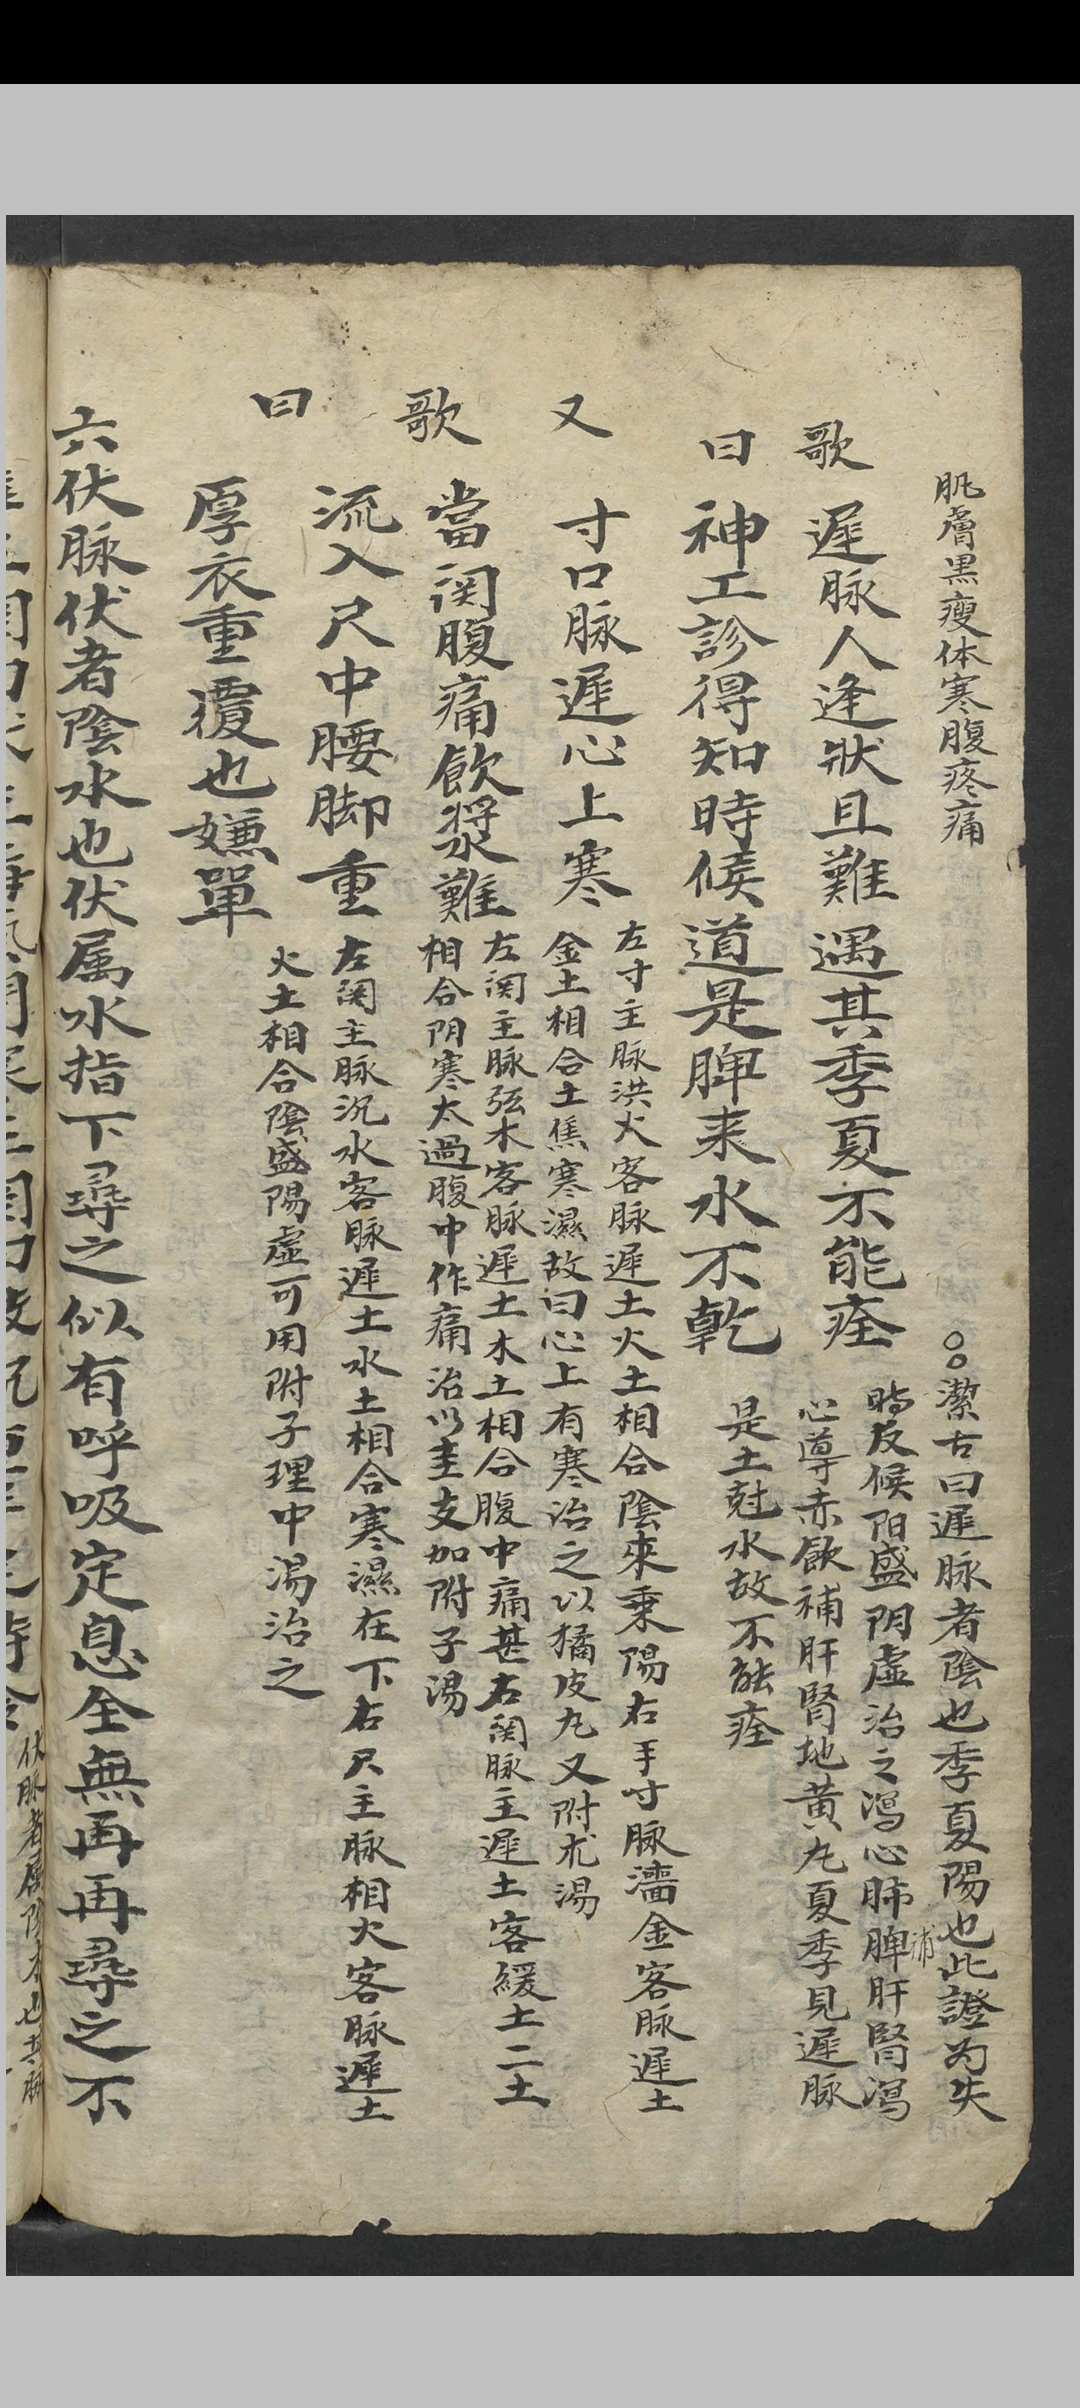 肌膚黒瘦体寒腹疼痛　○○潔古曰遲脉者陰也季夏陽也此證为失
時反候阳盛阴虚治之瀉心肺脾肝腎瀉
補
心導赤飲補肝腎地黄丸夏季見遲脉
是土尅水故不能痊
歌
曰
遲脉人逢狀且難遇其季夏不能痊
神工診得知時候道是脾来水不乾
又
歌
曰
寸口脉遲心上寒
左寸主脉洪火客脉遲土火土相合陰來乗陽右手寸脉濇金客脉遲土
金土相合土焦寒濕故曰心上有寒治之以橘皮丸又附朮湯
當関腹痛飲漿難
左関主脉弦木客脉遲土木土相合腹中痛甚右関脉主遲土客緩土二土
相合阴寒太過腹中作痛治以圭支加附子湯
流入尺中腰脚重
左関主脉沉水客脉遲土水土相合寒濕在下右尺主脉相火客脉遲土
火土相合陰盛陽虚可用附子理中湯治之
厚衣重覆也嫌單
六伏脉伏者陰水也伏属水指下尋之似有呼吸定息全無再再尋之不